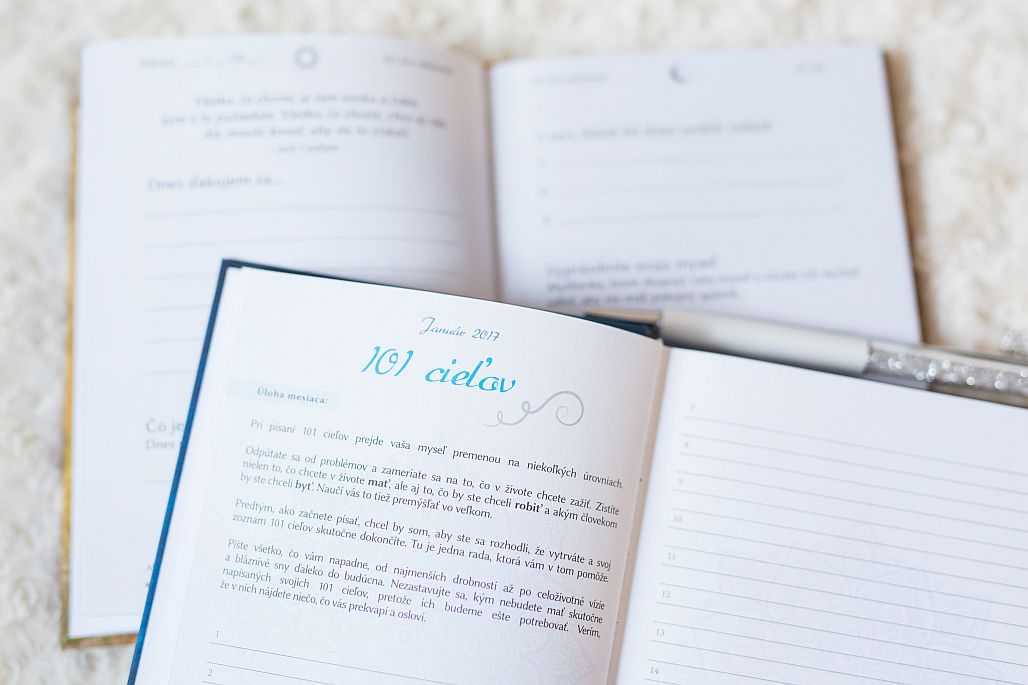 Dnes ďakujem za...
Čo je
Dnes
Január 2017
101 cieľov
Úloha mesiaca:
Pri písaní 101 cieľov prejde vaša myseľ premenou na niekoľkých úrovniach.
Odpútate sa od problémov a zameriate sa na to, čo v živote chcete zažiť. Zistíte
nielen to, čo chcete v živote mať, ale aj to, čo by ste chceli robiť a akým človekom
by ste chceli byť. Naučí vás to tiež premýšľať vo veľkom.
Predtým, ako začnete písať, chcel by som, aby ste sa rozhodli, že vytrváte a svoj
zoznam 101 cieľov skutočne dokončíte. Tu je jedna rada, ktorá vám v tom pomôže.
Píšte všetko, čo vám napadne, od najmenších drobností až po celoživotné vízie
a bláznivé sny ďaleko do budúcna. Nezastavujte sa, kým nebudete mať skutočne
napísaných svojich 101 cieľov, pretože ich budeme ešte potrebovať. Verím,
že v nich nájdete niečo, čo vás prekvapí a osloví.
1
2
7
8
9
10
11
12
13
14